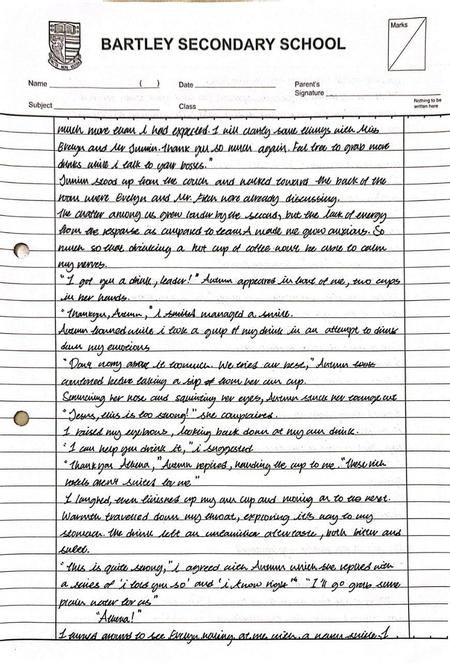 BARTLEY SECONDARY SCHOOL
Marks
Name ( ) Date Parent's
Signature
Subject Class
Nothing to be
written here
much more than I had expected. I will clarify some things with Miss
Evelyn and Mr Junin. Thank you so much again. Feel free to grab more
drinks while I talk to your bosses."
Junin stood up from the couch and walked toward the back of the
room where Evelyn and Mr. were already discussing.
The chatter among us grew louder by the second, but the lack of energy
from the response as compared to team A made me grow anxious. So
much so that drinking a hot cup of coffee won't be able to calm
my nerves.
"I got you a drink, leader!" Autumn appeared in front of me, two cups
in her hands.
"Thankyou, Autumn," I managed a smile.
Autumn while I took a gulp of my drink in an attempt to drink
down my emotions
"Don't worry about it too much. We tried our best," Autumn
before taking a sip of from her own cup.
Scrunching her nose and squinting her eyes, Autumn stuck her tongue out
"Jesus, this is too strong!" she complained.
I raised my eyebrows, looking back down at my own drink.
"I can help you drink it," I suggested
"Thank you Athena," Autumn replied, handing the cup to me. "These rich
hotels aren't suited for me."
I laughed, even finished up my own cup and moving on to the next.
Warmth travelled down my throat, exploring it's way to my
stomach the drink left an unfamiliar aftertaste, both bitter and
sweet.
"This is quite strong," I agreed with Autumn which she replied with
a series of 'i told you so' and 'i know right' "I'll go grab some
water for us"
"Athena!"
I turned around to see Evelyn at me with a warm smile. I